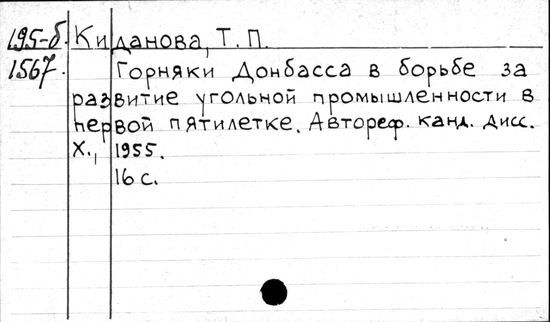 195-б. Киданова, Т. П.
1567. Горняки Донбасса в борьбе за
развитие угольной промышленности в
первой пятилетке. Автореф. канд. дисс.
Х., 1955.
16 с.